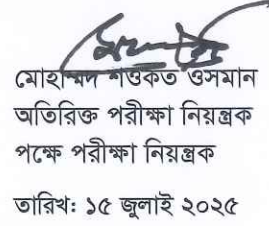 মোহাম্মদ শওকত ওসমান
অতিরিক্ত পরীক্ষা নিয়ন্ত্রক
পক্ষে পরীক্ষা নিয়ন্ত্রক
তারিখ: ১৫ জুলাই ২০২৫